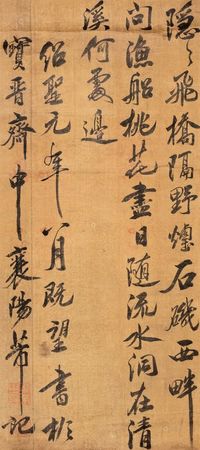 隱〻飛橋隔野煙石磯西畔
問漁船桃花盡日随流水洞在清
溪何處邊
紹聖元年八月既望書於
寶晉齋中襄陽芾記